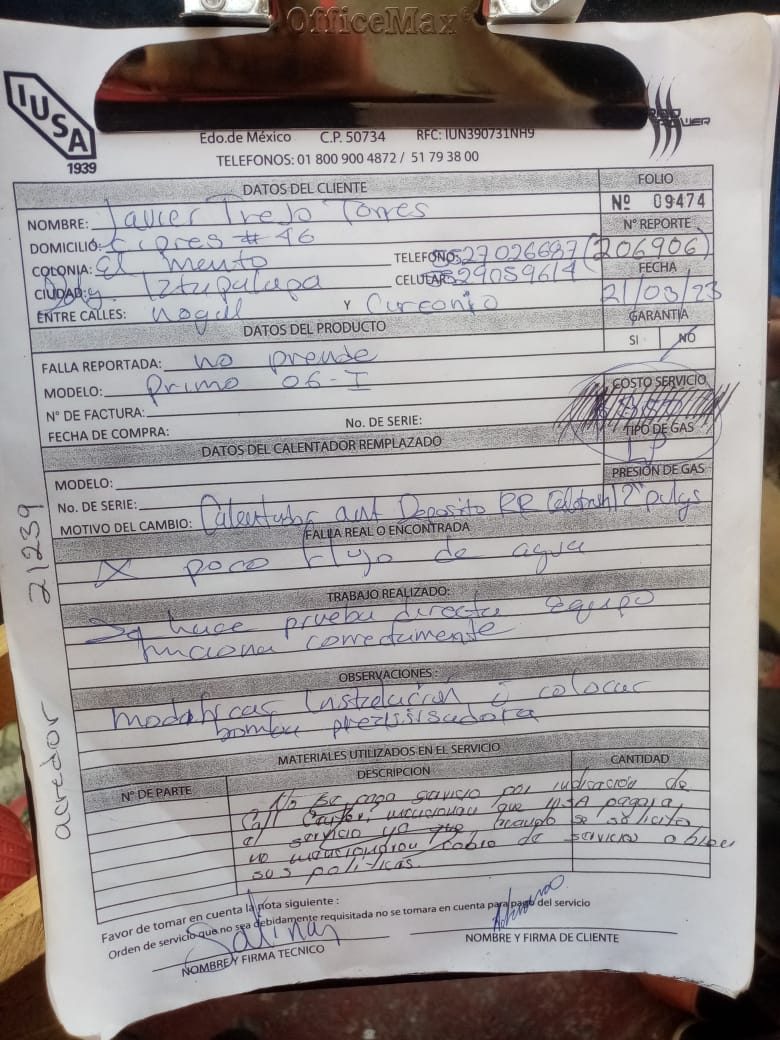 OfficeMax
IUSA
1939
Edo.de México C.P. 50734 RFC: IUN390731NH9
TELEFONOS: 01 800 900 4872 / 51 79 38 00
DATOS DEL CLIENTE
FOLIO
Nº 09474
NOMBRE: Javier Trejo Torres
Nº REPORTE
(206906)
DOMICILIÓ: Cipres # 46
TELEFONO: 5527026687
COLONIA: El mento
CELULAR: 5529059614
FECHA
21/03/23
CIUDAD: Iztapalapa
ENTRE CALLES: nogal Y Circonio
GARANTIA
DATOS DEL PRODUCTO
SI NO
FALLA REPORTADA: no prende
MODELO: Primo 06-I
COSTO SERVICIO
N° DE FACTURA:
FECHA DE COMPRA: No. DE SERIE:
TIPO DE GAS
LP
DATOS DEL CALENTADOR REMPLAZADO
MODELO:
PRESIÓN DE GAS
No. DE SERIE:
MOTIVO DEL CAMBIO: Calentador ant Deposito RR 2" pulgs
FALLA REAL O ENCONTRADA
X poco flujo de agua
TRABAJO REALIZADO:
Se hace prueba directa equipo
funciona corredamente
OBSERVACIONES:
modificar instalación ó colocar
bomba
MATERIALES UTILIZADOS EN EL SERVICIO
N° DE PARTE DESCRIPCION CANTIDAD
No se paga servicio por indicación de
Call Center, mencionan que IUSA pagara
el servicio ya que cuando se solicito
no mencionaron cobro de servicio
sus políticas.
Favor de tomar en cuenta la nota siguiente :
Orden de servicio que no sea debidamente requisitada no se tomara en cuenta para pago del servicio
Salinas
NOMBRE Y FIRMA TECNICO
NOMBRE Y FIRMA DE CLIENTE
21239
acredor